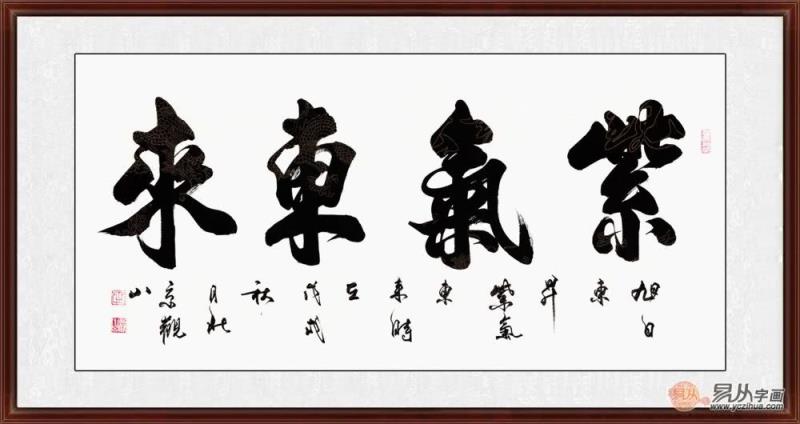 紫氣東來
旭日
東
昇
紫氣
東
來時
在
戊戌
秋
月於
京觀
山
易从
易从字画
www.yczihua.com